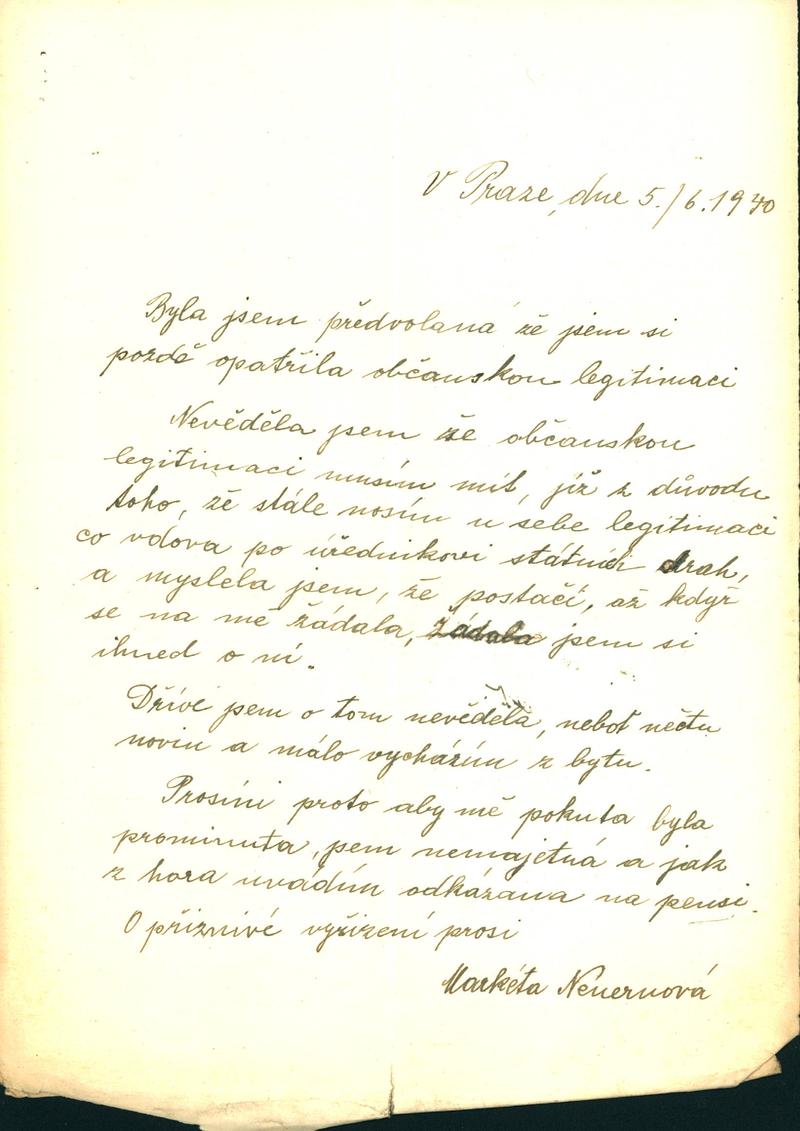 V Praze, dne 5./6. 1940
Byla jsem předvolaná že jsem si
pozdě opatřila občanskou legitimaci
Nevěděla jsem že občanskou
legitimaci musím mít, již z důvodu
toho, že stále nosím u sebe legitimaci
co vdova po úředníkovi státních drah,
a myslela jsem, že postačí, až když
se na mě žádala, žádala jsem si
ihned o ní.
Dříve jsem o tom nevěděla, neboť nečtu
novin a málo vycházím z bytu.
Prosím proto aby mě pokuta byla
prominuta, jsem nemajetná a jak
z hora uvádím odkázana na pensi.
O příznivé vyřízení prosí
Markéta